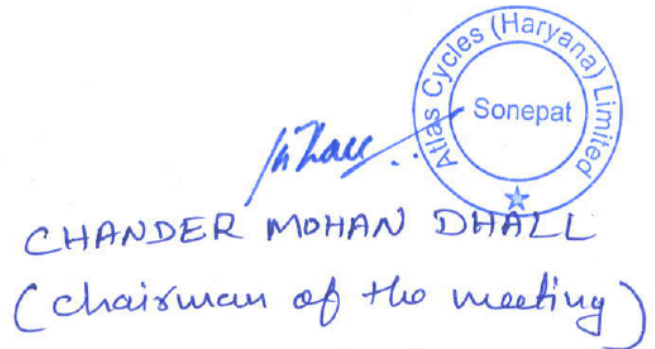 Atlas Cycles (Haryana) Limited
Sonepat
CHANDER MOHAN DHALL
(chairman of the meeting)